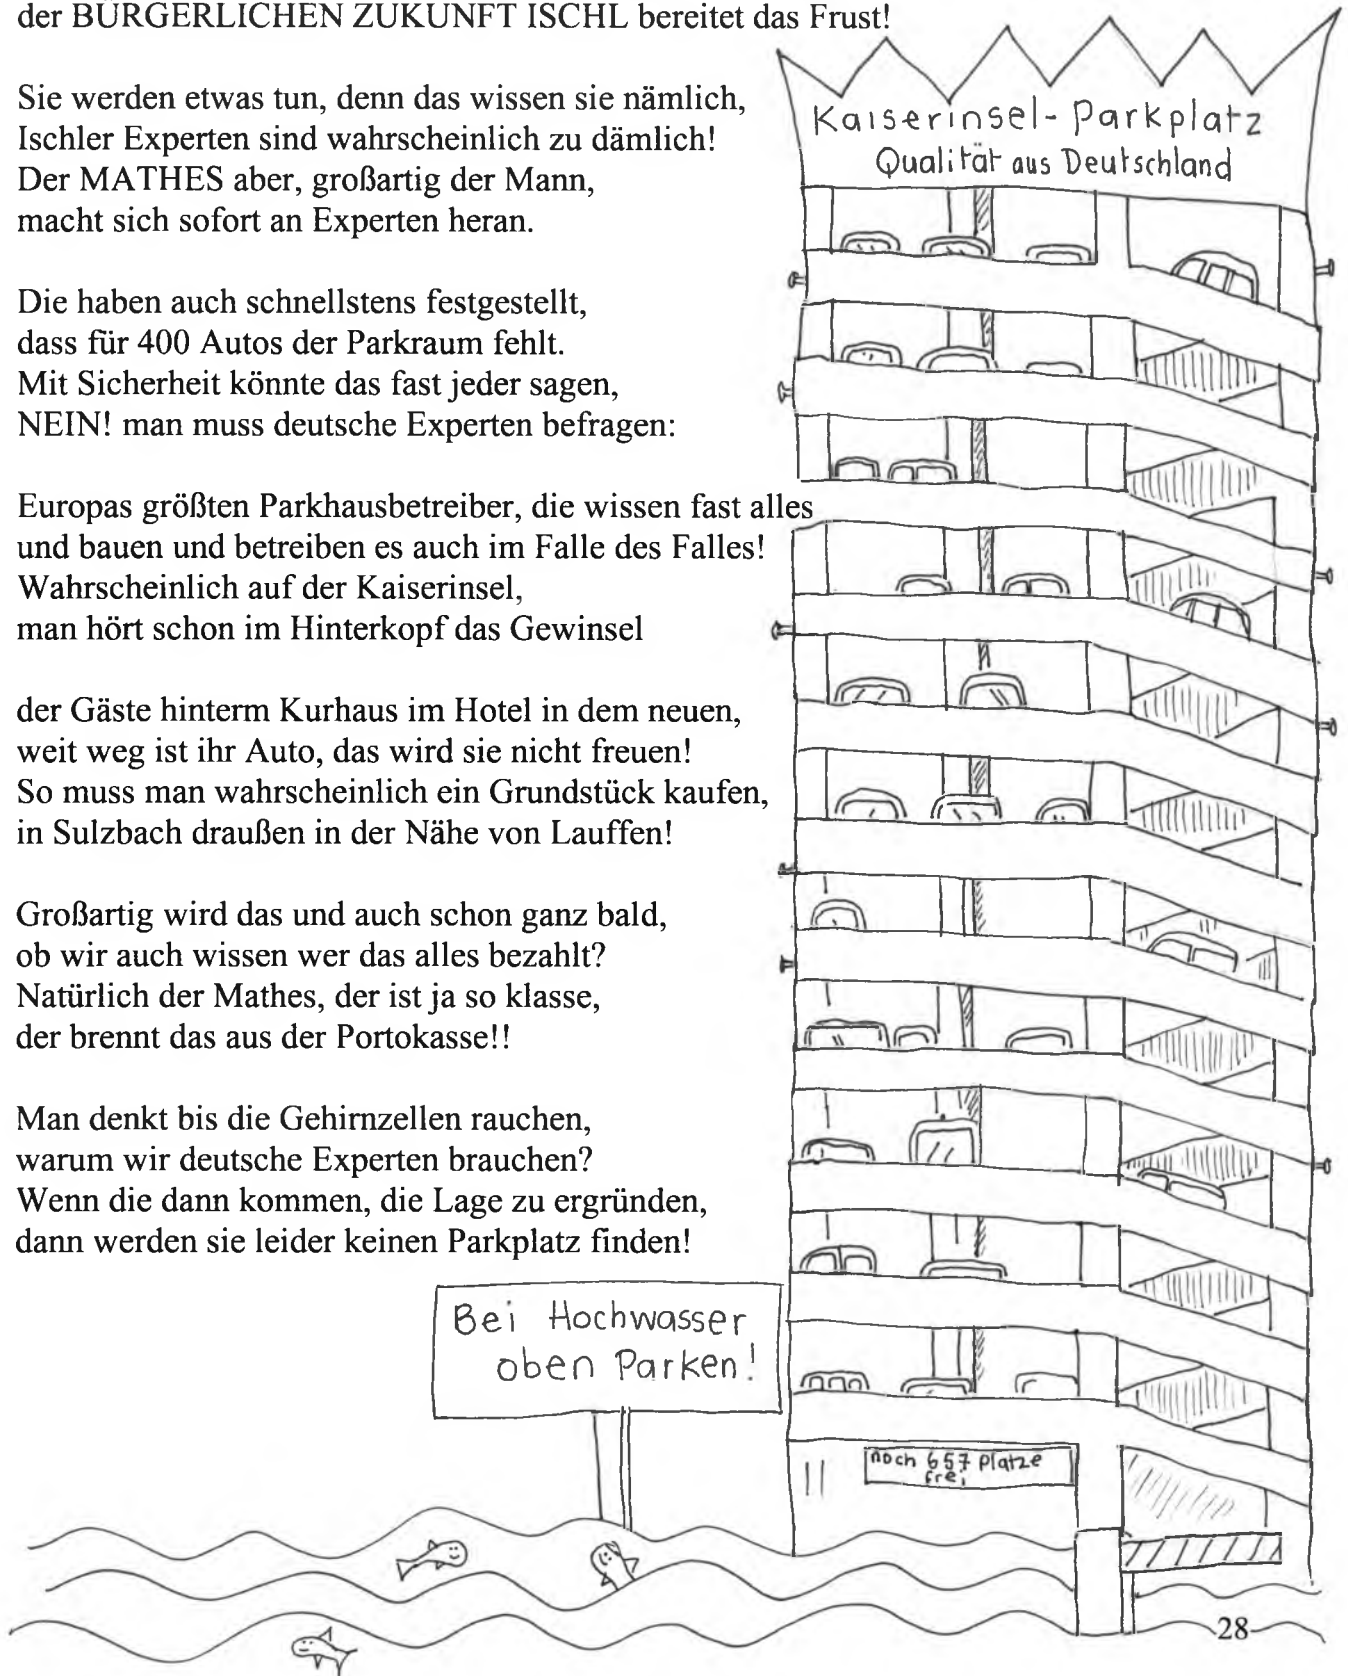 der BÜRGERLICHEN ZUKUNFT ISCHL bereitet das Frust!
Sie werden etwas tun, denn das wissen sie nämlich,
Ischler Experten sind wahrscheinlich zu dämlich!
Der MATHES aber, großartig der Mann,
macht sich sofort an Experten heran.
Die haben auch schnellstens festgestellt,
dass für 400 Autos der Parkraum fehlt.
Mit Sicherheit könnte das fast jeder sagen,
NEIN! man muss deutsche Experten befragen:
Europas größten Parkhausbetreiber, die wissen fast alles
und bauen und betreiben es auch im Falle des Falles!
Wahrscheinlich auf der Kaiserinsel,
man hört schon im Hinterkopf das Gewinsel
der Gäste hinterm Kurhaus im Hotel in dem neuen,
weit weg ist ihr Auto, das wird sie nicht freuen!
So muss man wahrscheinlich ein Grundstück kaufen,
in Sulzbach draußen in der Nähe von Lauffen!
Großartig wird das und auch schon ganz bald,
ob wir auch wissen wer das alles bezahlt?
Natürlich der Mathes, der ist ja so klasse,
der brennt das aus der Portokasse!!
Man denkt bis die Gehirnzellen rauchen,
warum wir deutsche Experten brauchen?
Wenn die dann kommen, die Lage zu ergründen,
dann werden sie leider keinen Parkplatz finden!
Kaiserinsel-Parkplatz
Qualität aus Deutschland
Bei Hochwasser
oben Parken!
noch 657 Platze
frei
28